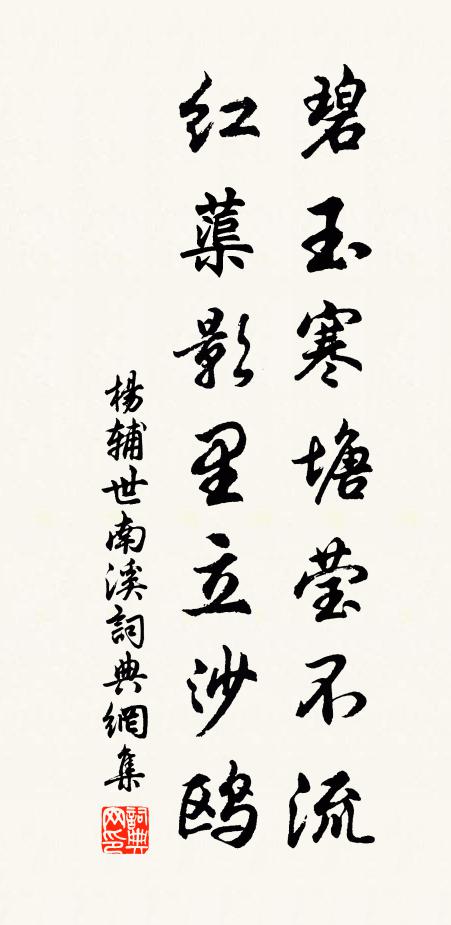 碧玉寒塘莹不流
红蕖影里立沙鸥
杨辅世南溪詞典網集
詞典网印